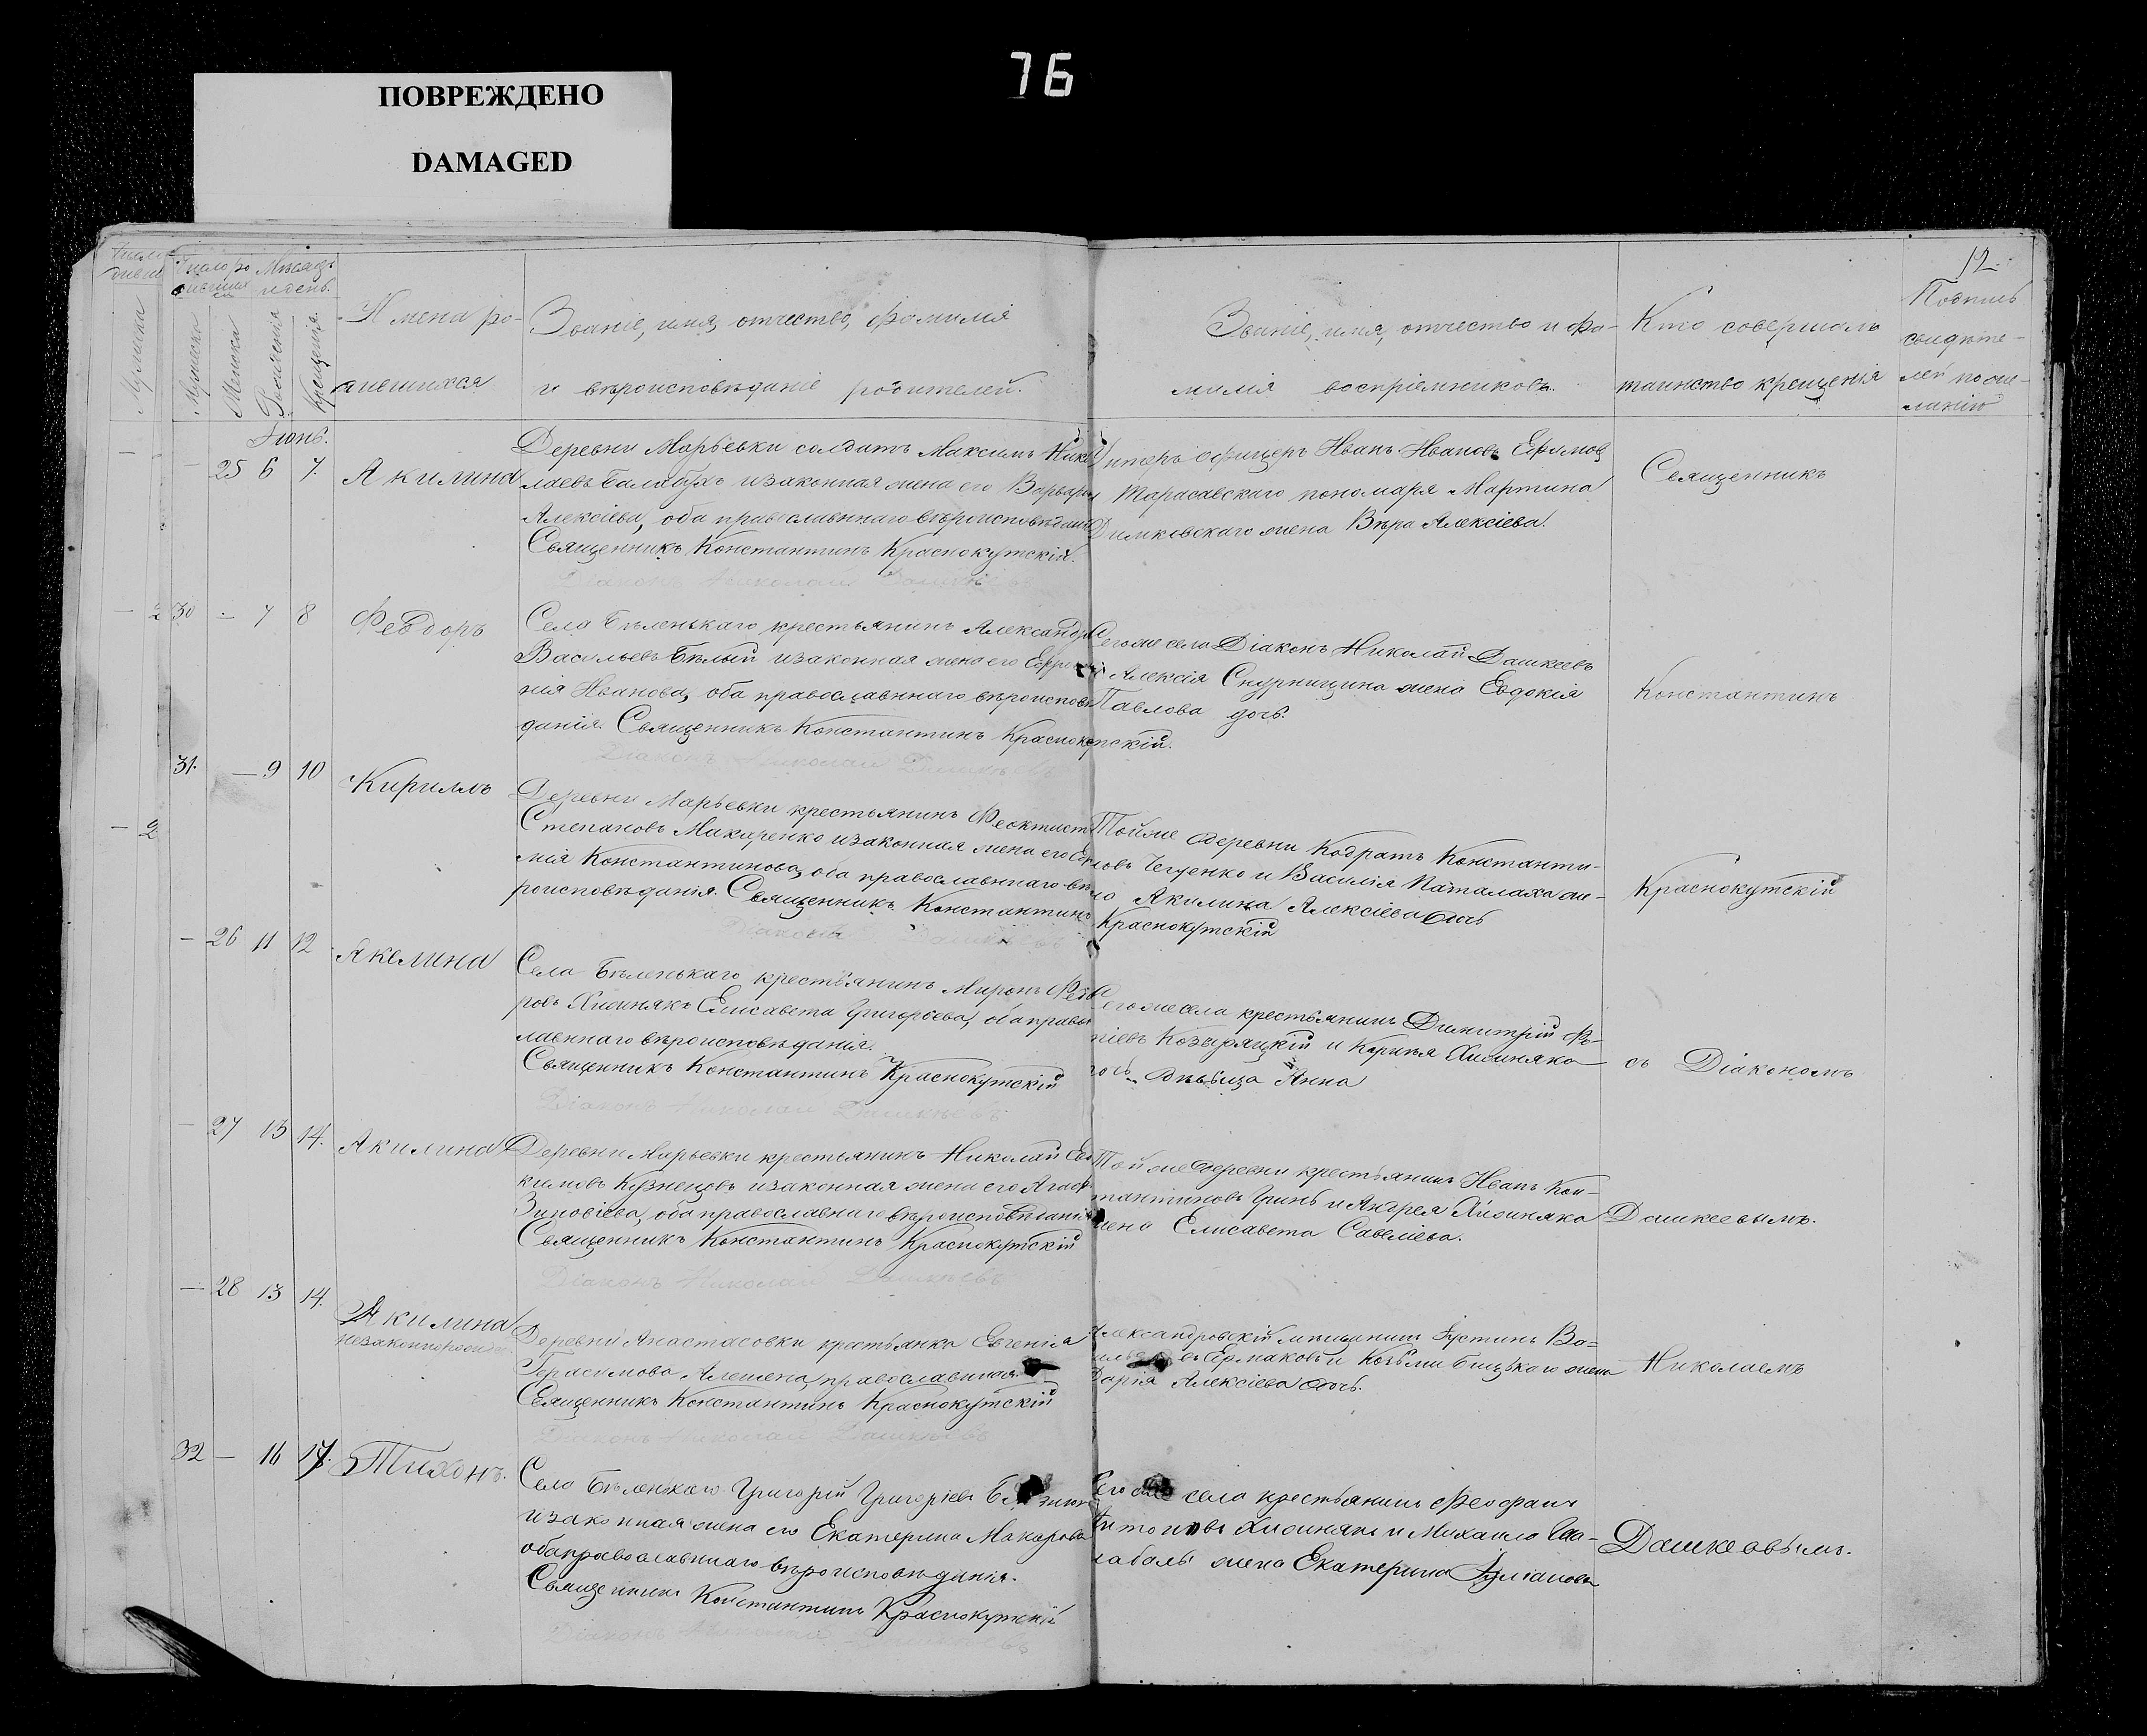 76
ПОВРЕЖДЕНО
DAMAGED
12.
Мѣсяцъ
и день.
Мужска
Женска
Рожденія
Крещенія
Имена ро-
дившихся
Званіе, имя, отчество, фамилія
и вѣроисповѣданіе родителей.
Званіе, имя, отчество и фа-
милія воспріемниковъ.
Кто совершалъ
таинство крещенія
Подпись
свидѣте-
лей по же-
ланію
Іюнь.
— 25 6 7. Акилина
Деревни Марьевки солдатъ Максимъ Нико
лаевъ Балабухъ и законная жена его Варвара
Алексіева, оба православннаго вѣроисповѣданія
Священникъ Константинъ Краснокутскій.
Діаконъ Николай Дашкѣевъ
Унтеръ офицеръ Иванъ Ивановъ Ефимов
и Тарасавскаго пономаря Мартина
Димковскаго жена Вѣра Алексіева.
Священникъ
30 — 7 8 Феодоръ
Села Бѣленькаго крестьянинъ Александръ
Васильевъ Бѣлый и законная жена его Ефроси
нія Иванова, оба православннаго вѣроисповѣ
данія. Священникъ Константинъ Краснокутскій.
Діаконъ Николай Дашкѣевъ
Сего же села Діаконъ Николай Дашкеевъ
и Алексія Снурницина жена Евдокія
Павлова дочь.
Константинъ
31. — 9 10 Кириллъ
Деревни Марьевки крестьянинъ Феоктистъ
Степановъ Макаренко и законная жена его
мія Константинова, оба православннаго вѣ
роисповѣданія. Священникъ Константинъ
Краснокутскій
Діаконъ Дашкѣевъ
Той же деревни Кодратъ Константи-
новъ и Василія Паталаха же-
на Акилина Алексіева дочь
Краснокутскій
— 26 11 12 Акелина
Села Бѣленькаго крестьянинъ Миронъ Федо
ровъ Хижнякъ Елисавета Григорьева, оба правос
лавннаго вѣроисповѣданія.
Священникъ Константинъ Краснокутскій
Діаконъ Николай Дашкѣевъ
Сего же села крестьянинъ Димитрій
и Хижняка
дочь дѣвица Анна
съ Діакономъ
— 27 13 14. Акилина
Деревни Марьевки крестьянинъ Николай Ево
кимовъ Кузнецовъ и законная жена его Агаф
Зиновіева, оба православннаго вѣроисповѣданія
Священникъ Константинъ Краснокутскій
Діаконъ Николай Дашкѣевъ
Той же деревни крестьянинъ Иванъ Кон-
стантиновъ Гринь и Андрея Хижняка
жена Елисавета Савеліева.
Дашкеевымъ.
— 28 13 14. Акилина
незаконнорожден.
Деревни Анастасовки крестьянка Евгенія
Герасимова православнная.
Священникъ Константинъ Краснокутскій
Діаконъ Николай Дашкѣевъ
Александровскій мѣщанинъ Іустинъ Ва-
сильевъ Ермаковъ и Козьми жена
Дарія Алексіева дочь.
Николаемъ
32 — 16 17. Тихонъ.
Села Бѣленькаго Григорій Григоріевъ
и законная жена его Екатерина Макарова
оба православннаго вѣроисповѣданія.
Священникъ Константинъ Краснокутскій
Діаконъ Николай Дашкѣевъ
Сего же села крестьянинъ Феофанъ
Антоновъ Хижнякъ и Михаила
жена Екатерина Іуліанова
Дашкеевымъ.